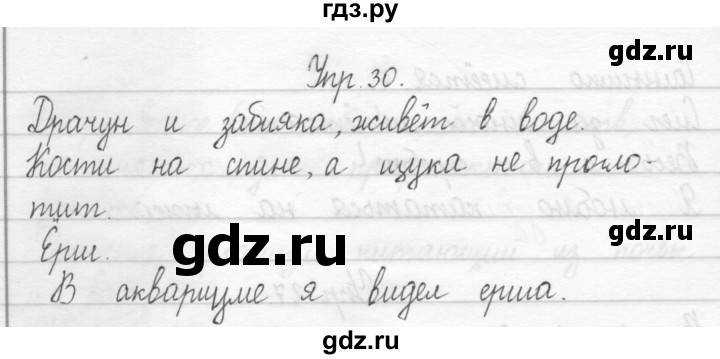 гдз.ру
gdz.ru
Упр. 30.
Драчун и забияка, живёт в воде.
Кости на спине, а щука не прогло-
тит.
gdz.ru
Ёрш.
gdz.ru
В аквариуме я видел ерша.
gdz.ru